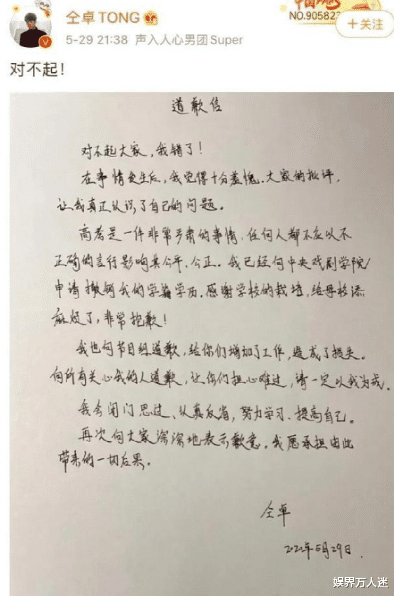 仝卓TONG
NO.905827
5-29 21:38 声入人心男团Super
+关注
对不起！
道歉信
对不起大家，我错了！
在事情发生后，我觉得十分羞愧。大家的批评，
让我真正认识了自己的问题。
高考是一件非常严肃的事情，任何人都不应以不
正确的言行影响其公平、公正。我已经向中央戏剧学院
申请撤销我的学籍学历。感谢学校的栽培，给母校添
麻烦了，非常抱歉！
我也向节目组道歉，给你们增加了工作，造成了损失。
向所有关心我的人道歉，让你们担心难过，请一定以我为戒。
我会闭门思过、认真反省，努力学习、提高自己。
再次向大家深深地表示歉意。我愿承担由此
带来的一切后果。
仝卓
2020年5月29日
娱界万人迷